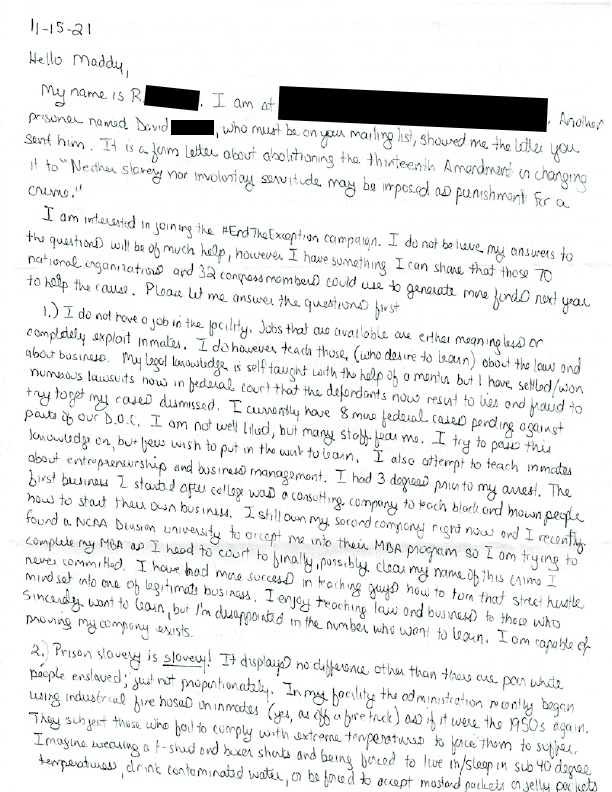 11-15-21
Hello Maddy,
My name is R. I am at . Another
prisoner named David , who must be on your mailing list, showed me the letter you
sent him. It is a form letter about abolitioning the thirteenth Amendment or changing
it to "Neither slavery nor involuntary servitude may be imposed as punishment for a
crime."
I am interested in joining the #EndTheException campaign. I do not believe my answers to
the questions will be of much help, however I have something I can share that those 70
national organizations and 32 congressmembers could use to generate more funds next year
to help the cause. Please let me answer the questions first
1.) I do not have a job in the facility. Jobs that are available are either meaningless or
completely exploit inmates. I do however teach those, (who desire to learn) about the law and
about business. My legal knowledge is self taught with the help of a mentor but I have settled/won
numerous lawsuits now in federal court that the defendants now resort to lies and fraud to
try to get my cases dismissed. I currently have 8 more federal cases pending against
parts of our D.O.C. I am not well liked, but many staff fear me. I try to pass this
knowledge on, but few wish to put in the work to learn. I also attempt to teach inmates
about entrepreneurship and business management. I had 3 degrees prior to my arrest. The
first business I started after college was a consulting company to teach black and brown people
how to start their own business. I still own my second company right now and I recently
found a NCAA Division university to accept me into their MBA program so I am trying to
complete my MBA as I head to court to finally, possibly clear my name of this crime I
never committed. I have had more success in teaching guys how to turn that street hustle
mindset into one of legitimate business. I enjoy teaching law and business to those who
sincerely want to learn, but I'm disappointed in the number who want to learn. I am capable of
proving my company exists.
2.) Prison slavery is slavery! It displays no difference other than there are poor white
people enslaved; just not proportionately. In my facility the administration recently began
using industrial fire hoses on inmates (yes, as off a fire truck) as if it were the 1950s again.
They subject those who fail to comply with extreme temperatures to force them to suffer.
Imagine wearing a t-shirt and boxer shorts and being forced to live in/sleep in sub 40 degree
temperatures, drink contaminated water, or be forced to accept mustard packets or jelly packets